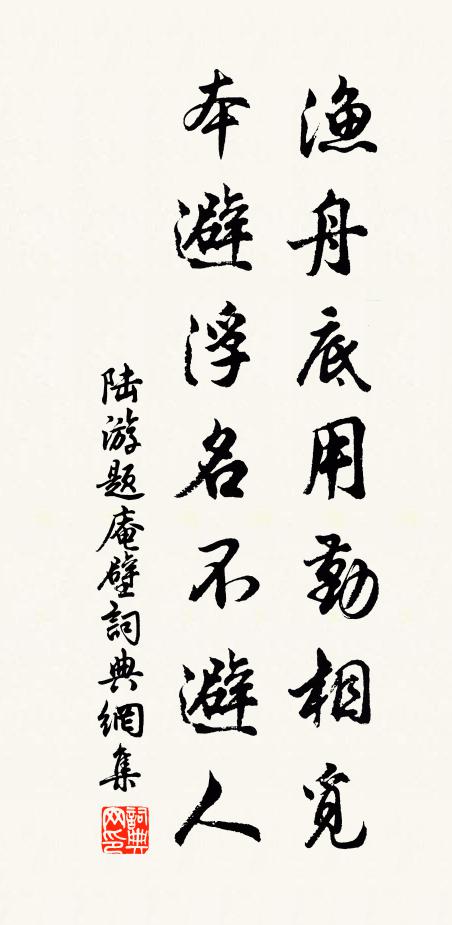 渔舟底用勤相觅
本避浮名不避人
陆游题庵壁詞典網集
詞典网印